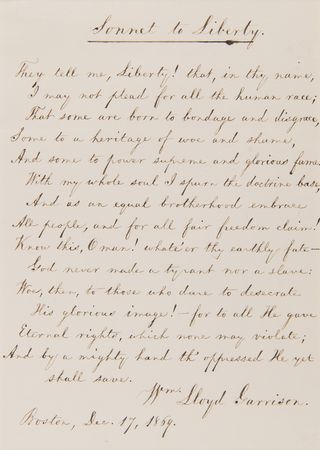 Sonnet to Liberty.
They tell me, Liberty! that, in thy name,
I may not plead for all the human race;
That some are born to bondage and disgrace,
Some to a heritage of woe and shame,
And some to power supreme and glorious fame.
With my whole soul I spurn the doctrine base,
And as an equal brotherhood embrace
All people, and for all fair freedom claim!
Know this, O man! whate'er thy earthly fate—
God never made a tyrant nor a slave:
Woe, then, to those who dare to desecrate
His glorious image! — for to all He gave
Eternal rights, which none may violate;
And by a mighty hand th' oppressed He yet
shall save.
Wm. Lloyd Garrison.
Boston, Dec. 17, 1869.